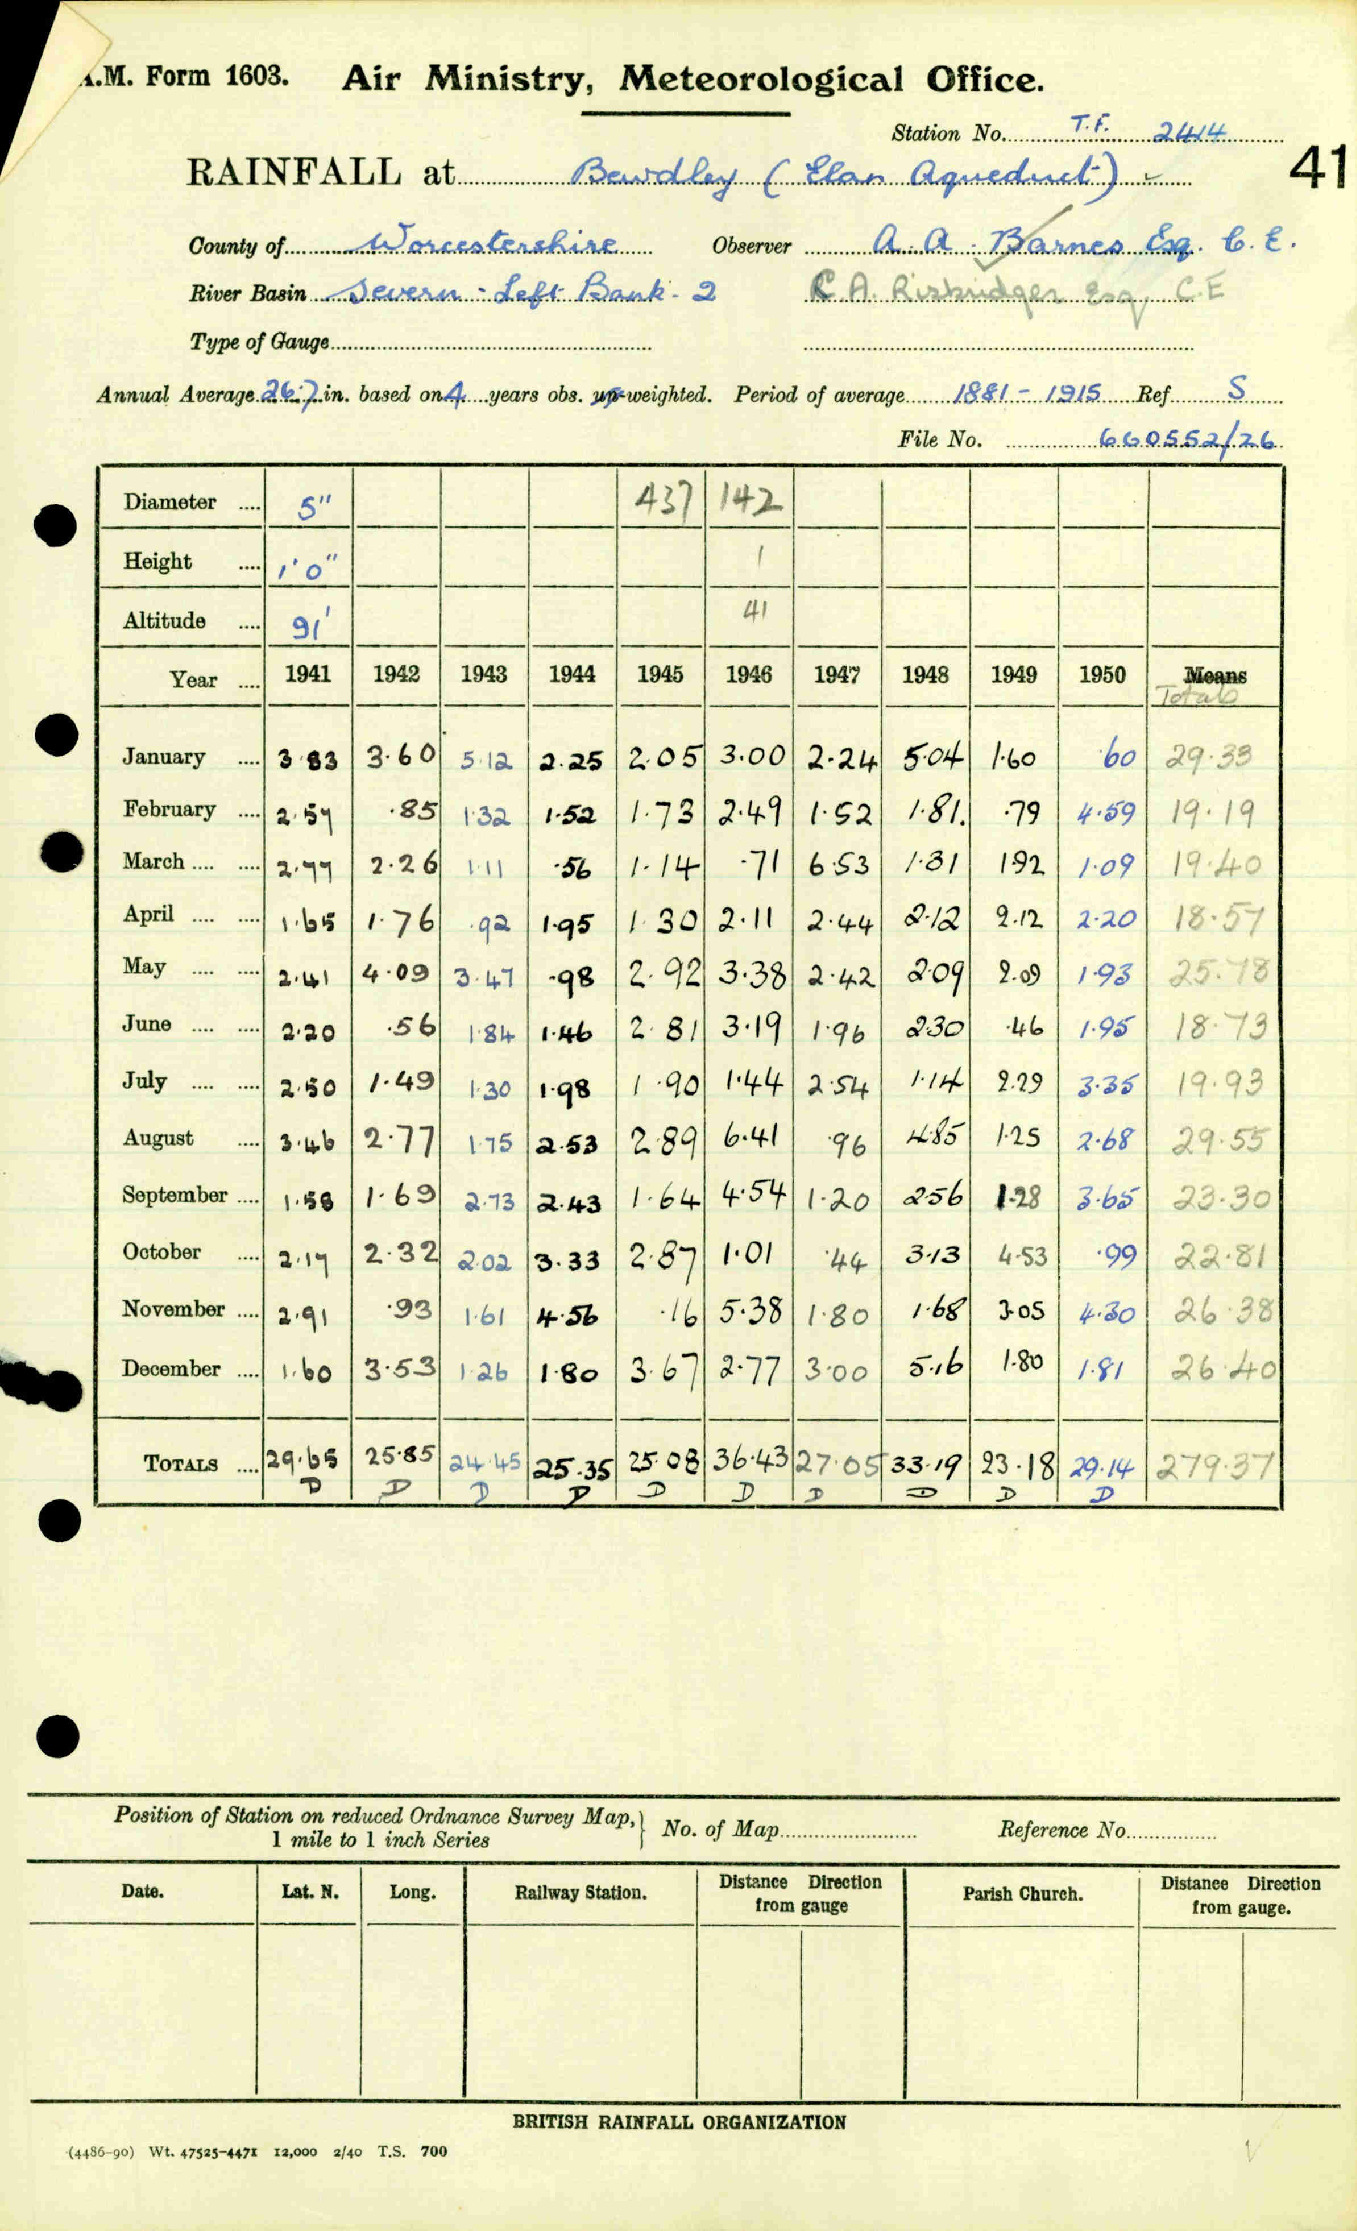 A.M. Form 1603. Air Ministry, Meteorological Office.
Station No. T.F. 2414
41
RAINFALL at Bewdley (Elan Aqueduct) ✓
County of Worcestershire Observer A. A. Barnes Esq. C. E.
River Basin Severn - Left Bank - 2 R. A. Risbridger Esq, C.E
Type of Gauge
Annual Average 26.7 in. based on 4 years obs. un-weighted. Period of average 1881 - 1915 Ref S
File No. 660552/26
Diameter .... 5" 437 142
Height .... 1' 0" 1
Altitude .... 91' 41
Year .... 1941 1942 1943 1944 1945 1946 1947 1948 1949 1950 Means
Totals
January .... 3.83 3.60 5.12 2.25 2.05 3.00 2.24 5.04 1.60 .60 29.33
February .... 2.57 .85 1.32 1.52 1.73 2.49 1.52 1.81. .79 4.59 19.19
March .... .... 2.77 2.26 1.11 .56 1.14 .71 6.53 1.31 1.92 1.09 19.40
April .... .... 1.65 1.76 .92 1.95 1.30 2.11 2.44 2.12 2.12 2.20 18.57
May .... .... 2.41 4.09 3.47 .98 2.92 3.38 2.42 2.09 2.09 1.93 25.78
June .... .... 2.20 .56 1.84 1.46 2.81 3.19 1.96 2.30 .46 1.95 18.73
July .... .... 2.50 1.49 1.30 1.98 1.90 1.44 2.54 1.14 2.29 3.35 19.93
August .... 3.46 2.77 1.75 2.53 2.89 6.41 .96 4.85 1.25 2.68 29.55
September .... 1.58 1.69 2.73 2.43 1.64 4.54 1.20 2.56 1.28 3.65 23.30
October .... 2.17 2.32 2.02 3.33 2.87 1.01 .44 3.13 4.53 .99 22.81
November .... 2.91 .93 1.61 4.56 .16 5.38 1.80 1.68 3.05 4.30 26.38
December .... 1.60 3.53 1.26 1.80 3.67 2.77 3.00 5.16 1.80 1.81 26.40
TOTALS .... 29.65 25.85 24.45 25.35 25.08 36.43 27.05 33.19 23.18 29.14 279.37
D D D D D D D D D D
Position of Station on reduced Ordnance Survey Map, 1 mile to 1 inch Series } No. of Map Reference No.
Date. Lat. N. Long. Railway Station. Distance Direction from gauge Parish Church. Distance Direction from gauge.
BRITISH RAINFALL ORGANIZATION
(4486-90) Wt. 47525-4471 12,000 2/40 T.S. 700